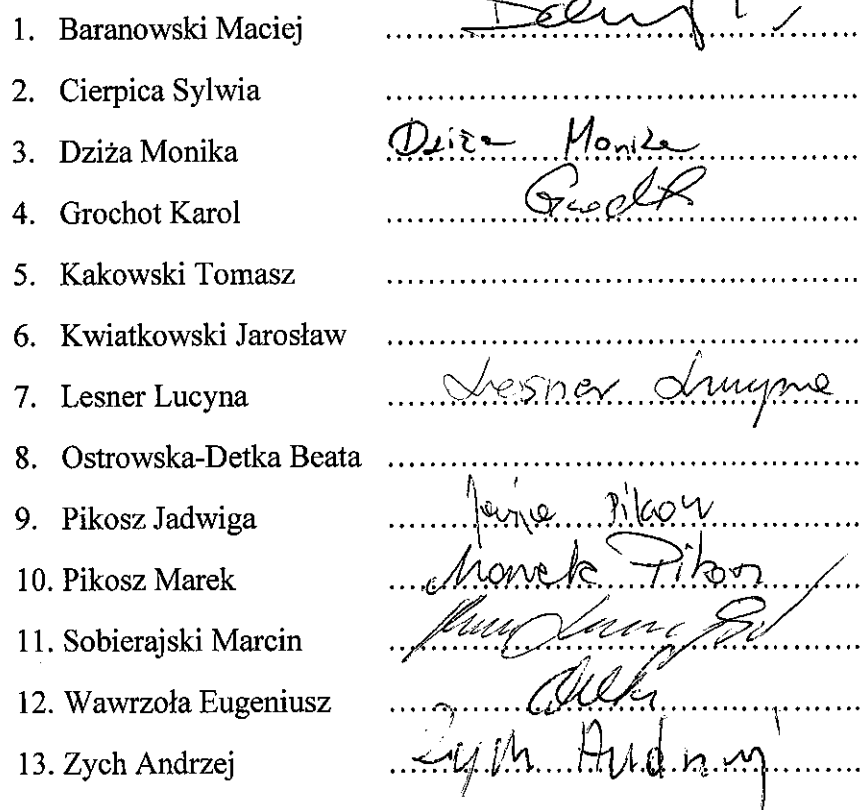 1. Baranowski Maciej ..........
2. Cierpica Sylwia ..........
3. Dziża Monika .......... Dziża Monika
4. Grochot Karol ..........
5. Kakowski Tomasz ..........
6. Kwiatkowski Jarosław ..........
7. Lesner Lucyna .......... Lesner Lucyna
8. Ostrowska-Detka Beata ..........
9. Pikosz Jadwiga .......... Pikosz
10. Pikosz Marek .......... Marek Pikosz
11. Sobierajski Marcin ..........
12. Wawrzoła Eugeniusz ..........
13. Zych Andrzej .......... Zych Andrzej